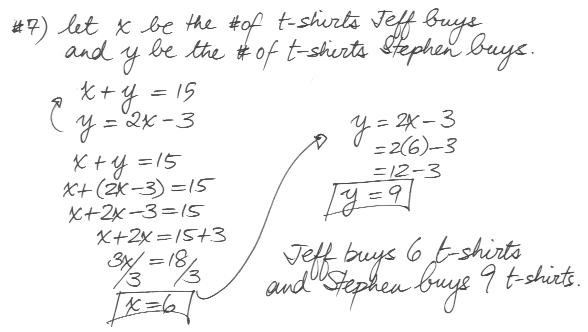 #7) let x be the # of t-shirts Jeff buys
and y be the # of t-shirts Stephen buys.
x + y = 15
y = 2x - 3
x + y = 15
x + (2x - 3) = 15
x + 2x - 3 = 15
x + 2x = 15 + 3
3x/3 = 18/3
x = 6
y = 2x - 3
= 2(6) - 3
= 12 - 3
y = 9
Jeff buys 6 t-shirts
and Stephen buys 9 t-shirts.